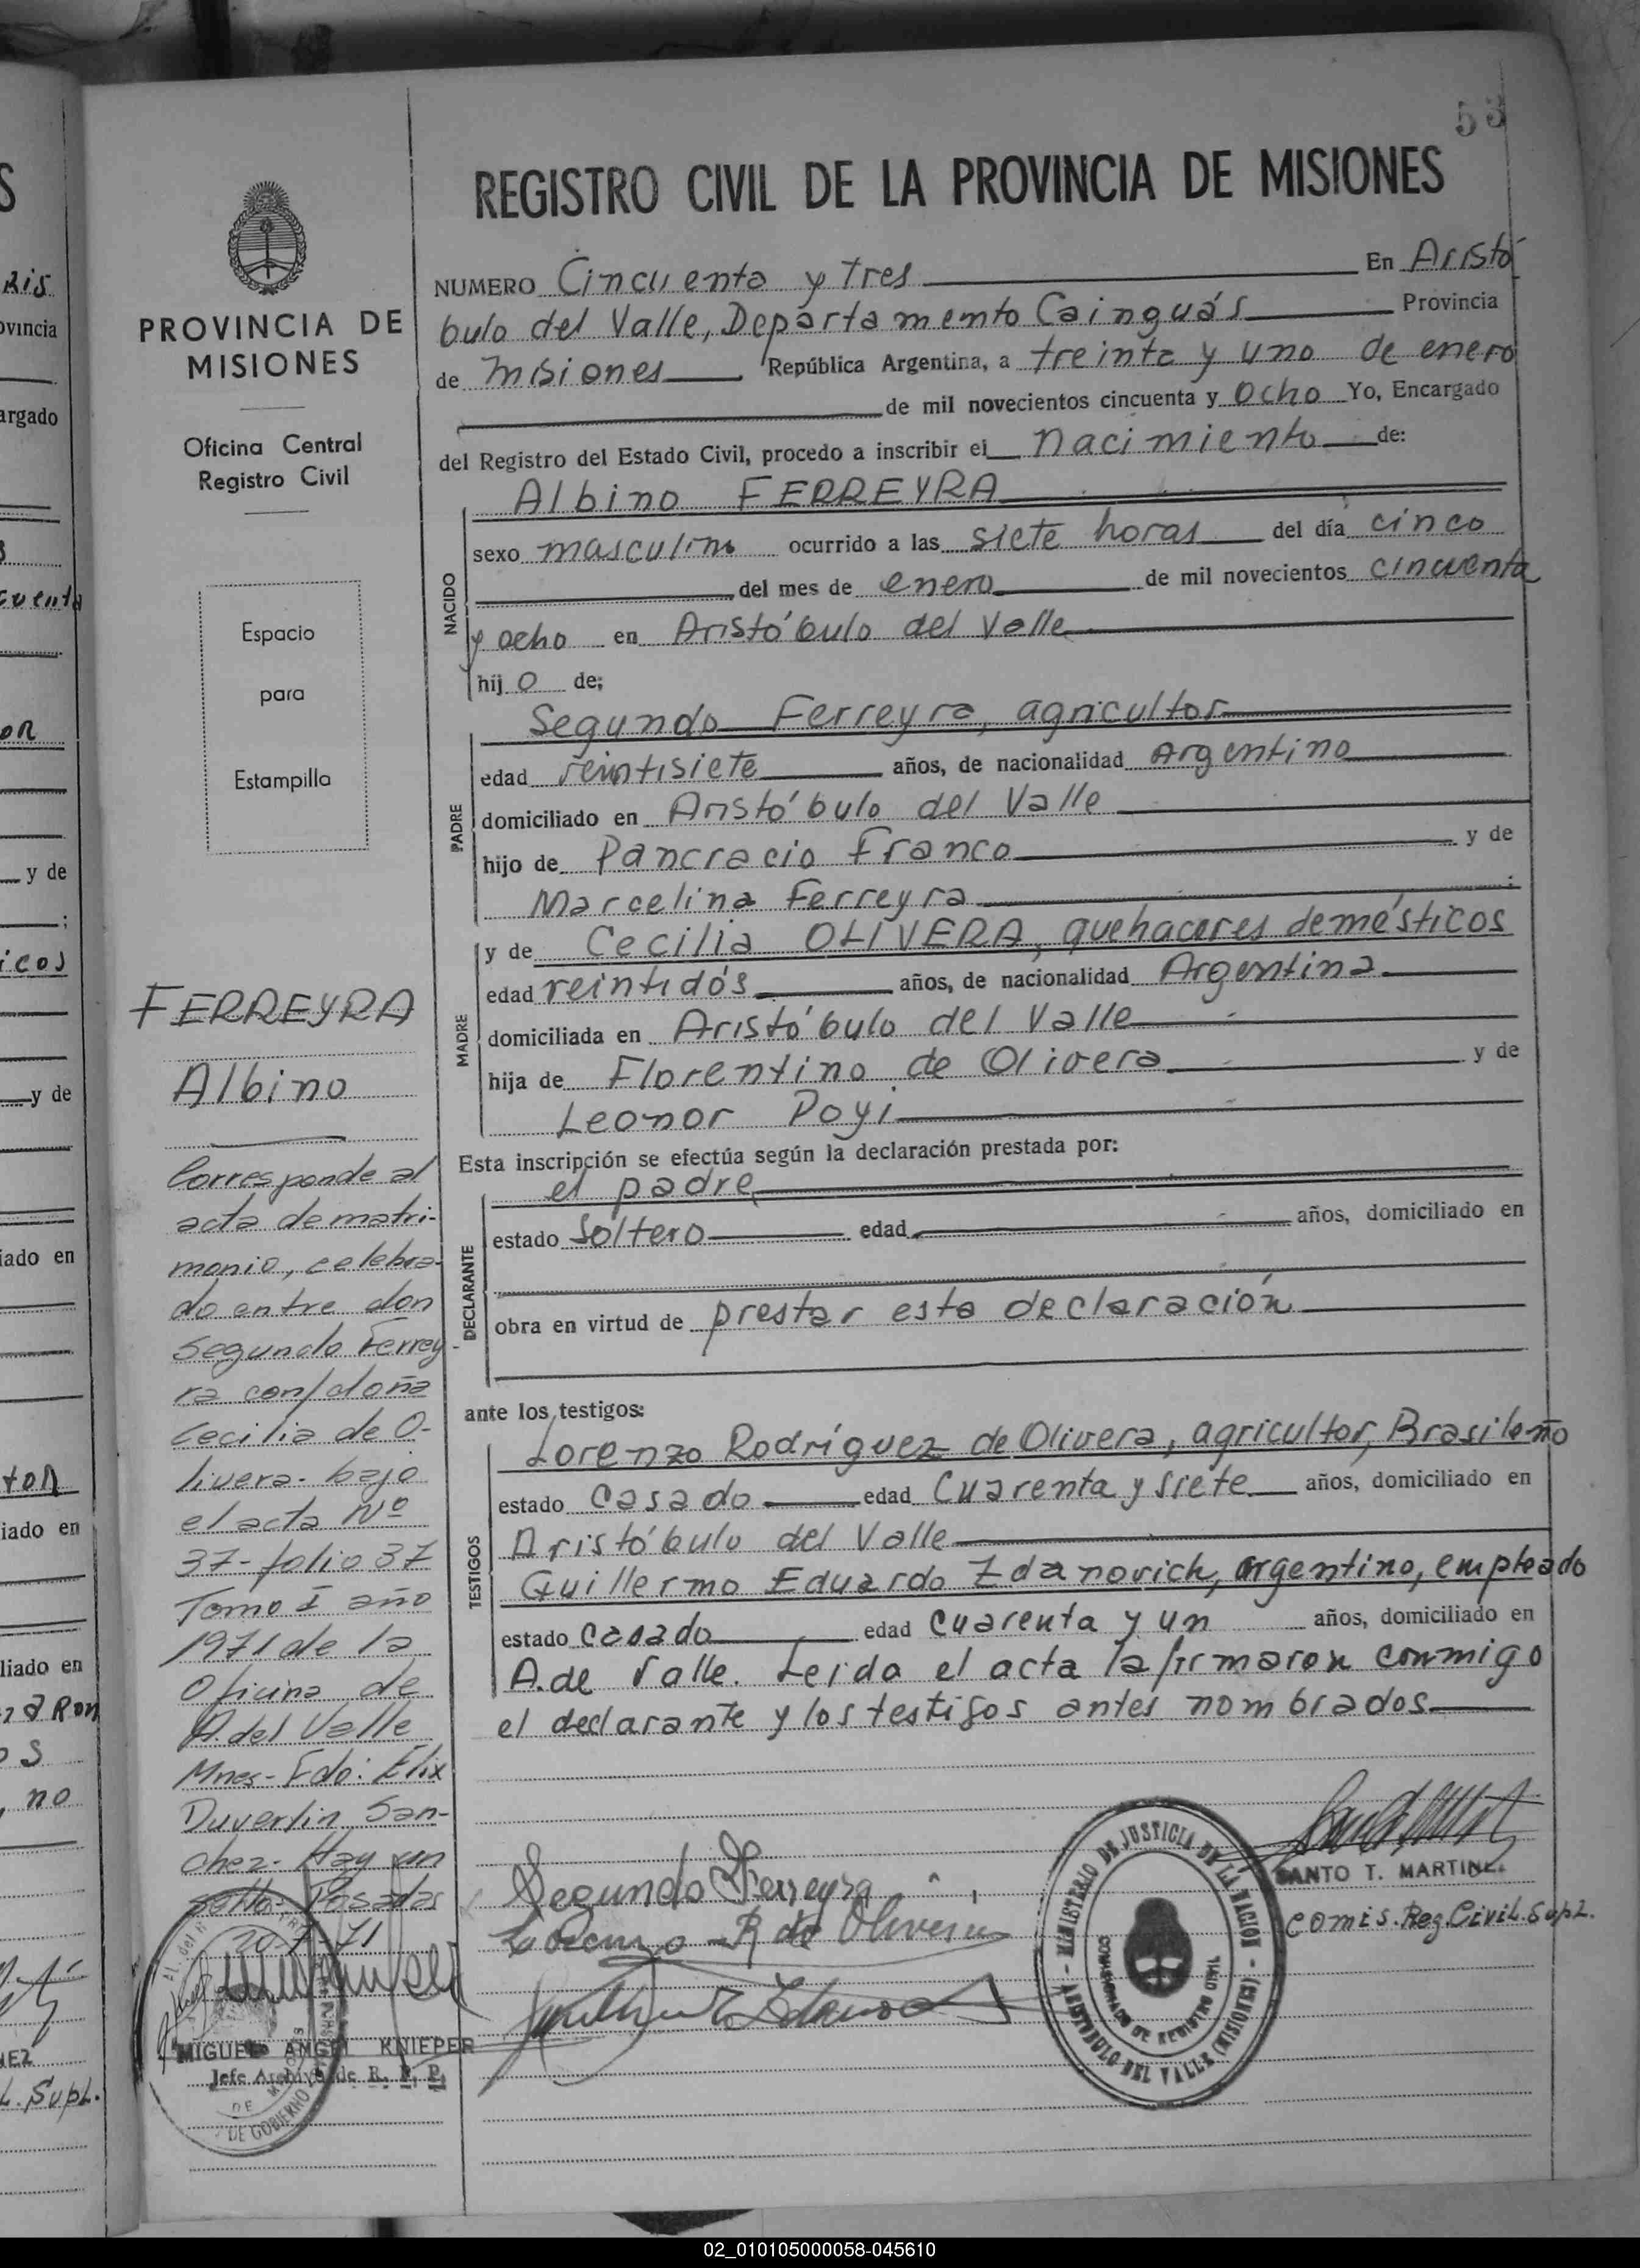 53
REGISTRO CIVIL DE LA PROVINCIA DE MISIONES
PROVINCIA DE
MISIONES
Oficina Central
Registro Civil
Espacio
para
Estampilla
NUMERO Cincuenta y tres En Aristó
bulo del Valle, Departamento Cainguás Provincia
de Misiones República Argentina, a treinta y uno de enero
de mil novecientos cincuenta y ocho Yo, Encargado
del Registro del Estado Civil, procedo a inscribir el nacimiento de:
NACIDO
Albino FERREYRA
sexo masculino ocurrido a las siete horas del día cinco
del mes de enero de mil novecientos cincuenta
y ocho en Aristóbulo del Valle
hij o de;
PADRE
Segundo Ferreyra, agricultor
edad veintisiete años, de nacionalidad Argentino
domiciliado en Aristóbulo del Valle
hijo de Pancracio Franco y de
Marcelina Ferreyra ;
MADRE
y de Cecilia OLIVERA, quehaceres demésticos
edad veintidós años, de nacionalidad Argentina
domiciliada en Aristóbulo del Valle
hija de Florentino de Olivera y de
Leonor Poyi
Esta inscripción se efectúa según la declaración prestada por:
DECLARANTE
el padre
estado Soltero edad años, domiciliado en
obra en virtud de prestar esta declaración
ante los testigos:
TESTIGOS
Lorenzo Rodríguez de Olivera, agricultor, Brasileño
estado Casado edad Cuarenta y siete años, domiciliado en
Aristóbulo del Valle
Guillermo Eduardo Zdanovich, argentino, empleado
estado Casado edad cuarenta y un años, domiciliado en
A. de Valle. Leida el acta la firmaron conmigo
el declarante y los testigos antes nombrados
Segundo Ferreyra
Lorenzo R de Olivera
MINISTERIO DE JUSTICIA DE LA NACION
COMISARIADO DE REGISTRO CIVIL
ARISTOBULO DEL VALLE (MISIONES)
SANTO T. MARTINEZ
Comis. Reg. Civil. Supl.
FERREYRA
Albino
Corresponde al
acta de matri-
monio, celebra-
do entre don
Segundo Ferrey-
ra con/doña
Cecilia de O-
livera- bajo
el acta Nº
37- folio 37
Tomo I año
1971 de la
Oficina de
A. del Valle
Mnes- Fdo: Elix
Duvertin San-
chez- Hay un
sello- Posadas
20-7-71
MIGUEL ANGEL KNIEPER
Jefe Archivo de R. P. P.
DE GOBIERNO
ris
ovincia
argado
cuenta
or
y de
icos
y de
iado en
tor
iado en
liado en
no
NEZ
L. Supl.
02_010105000058-045610